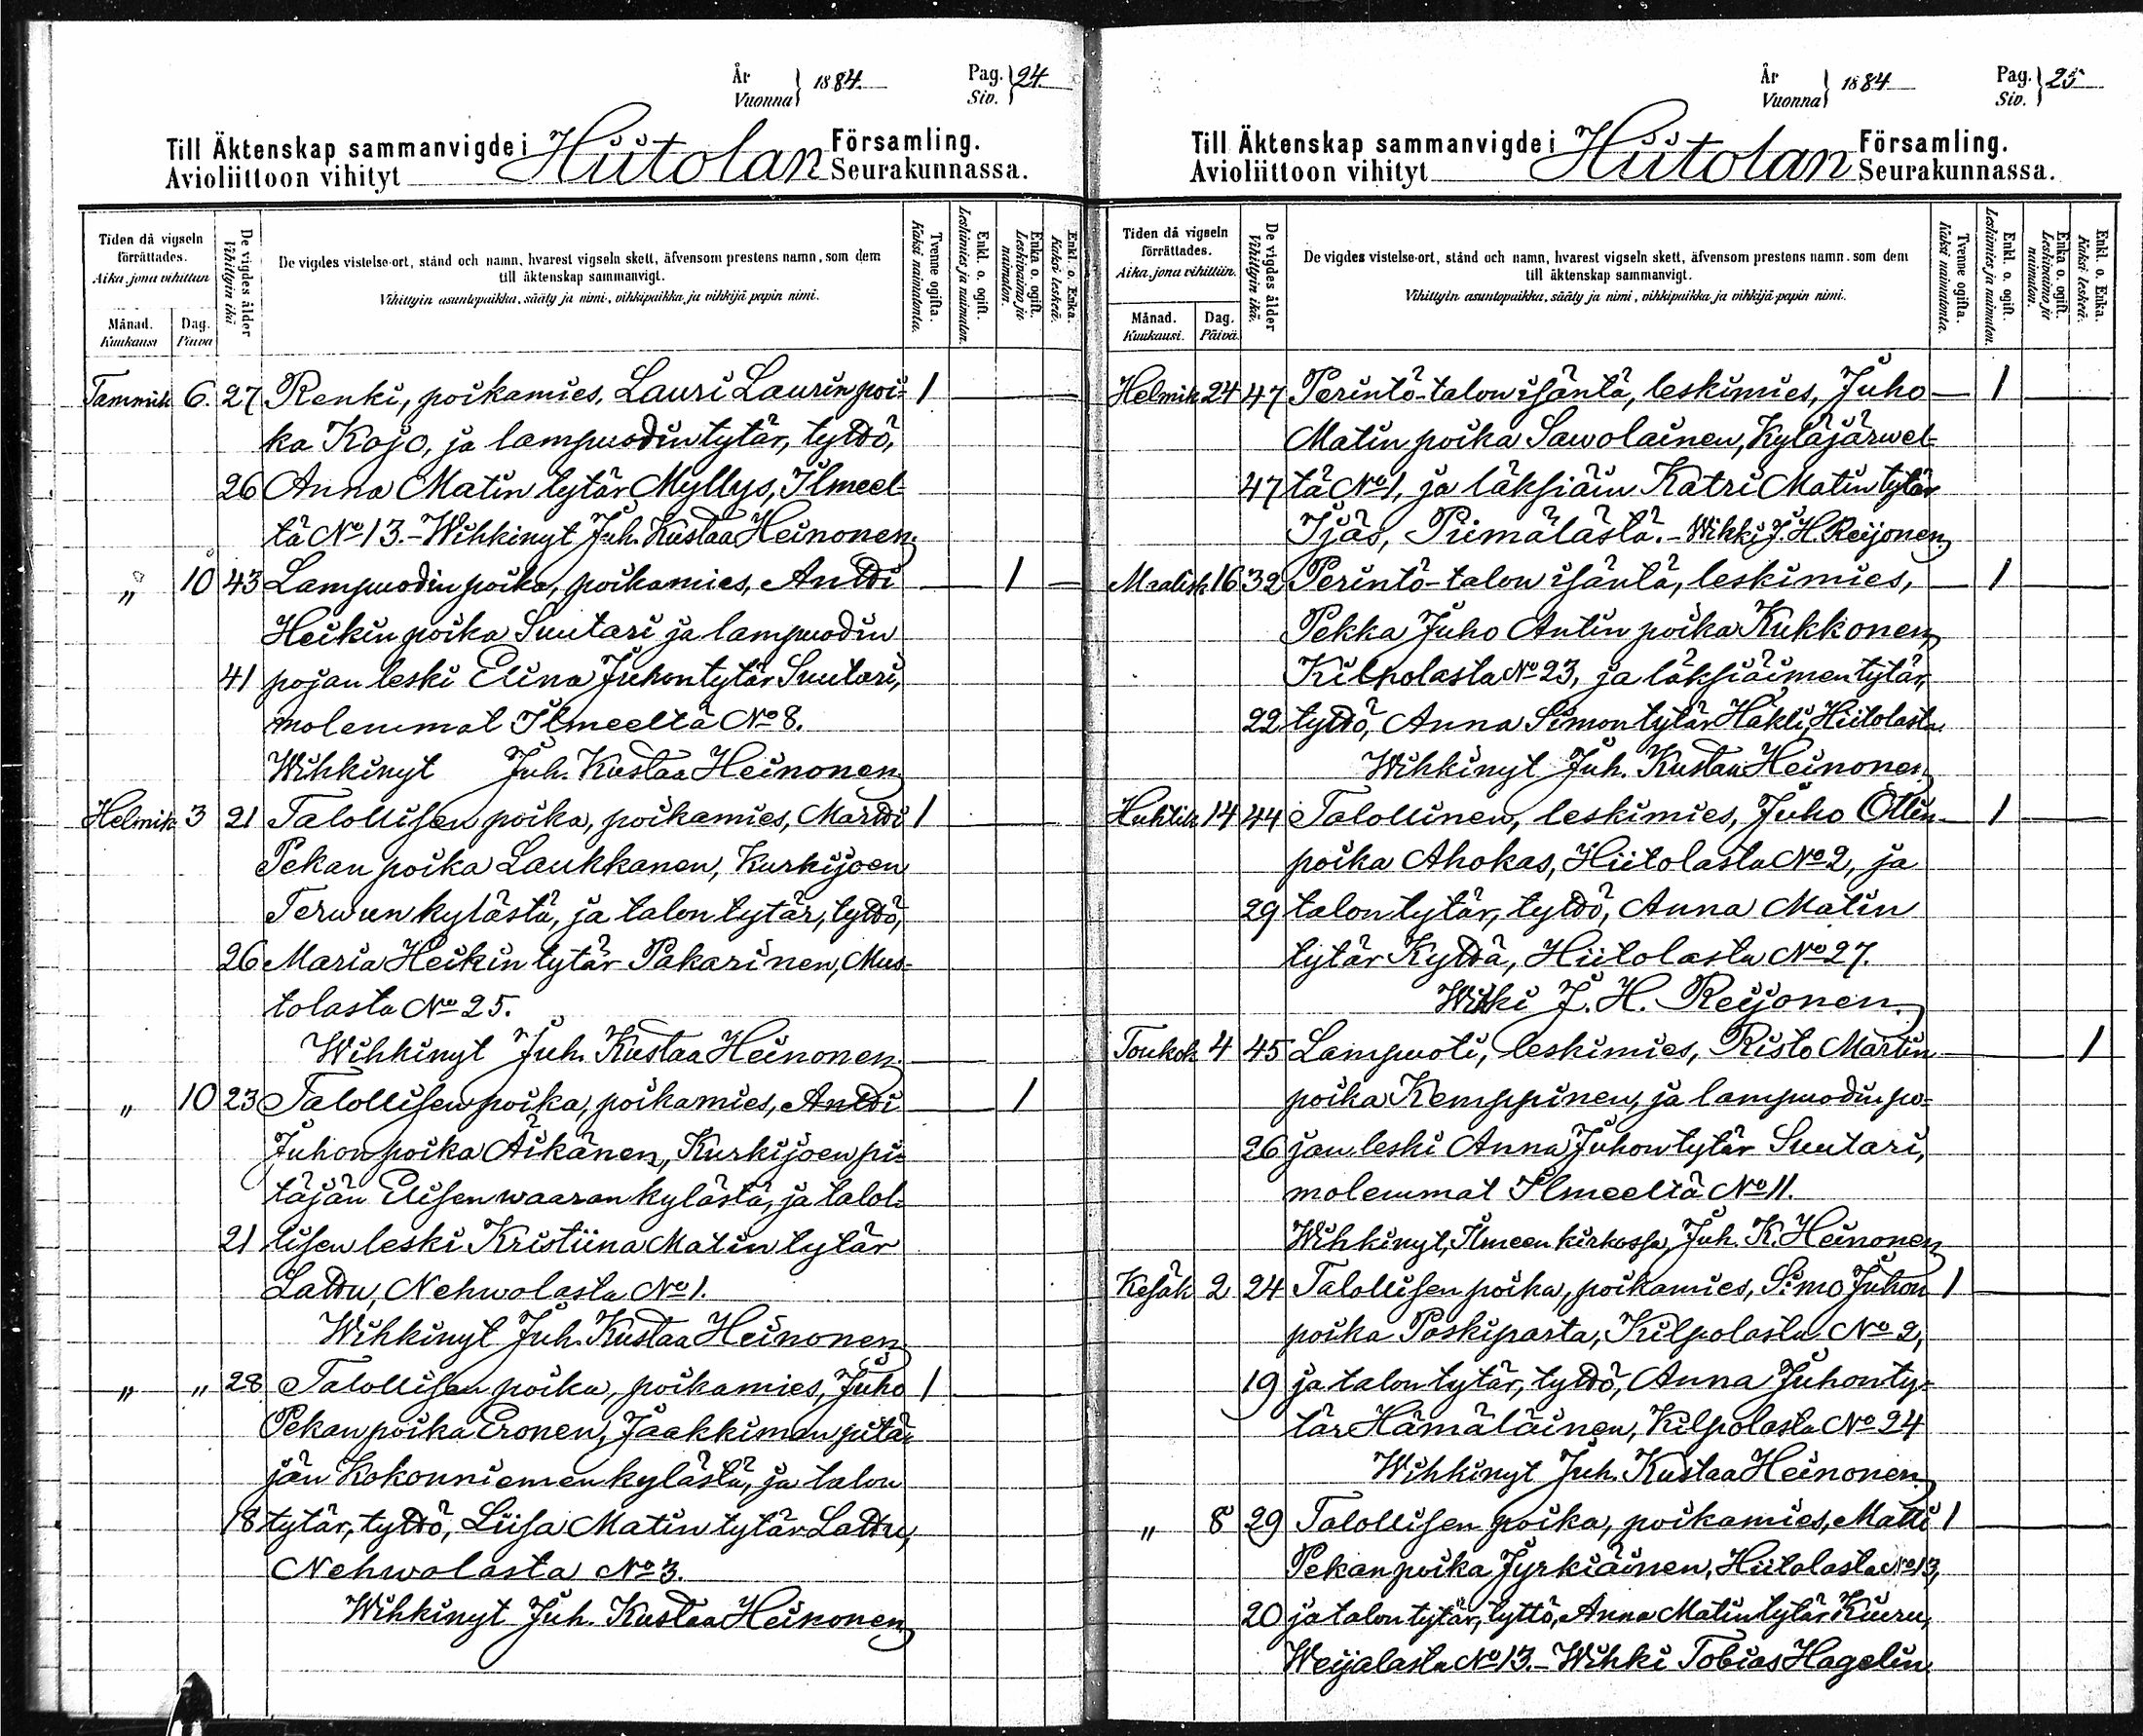 År
Vuonna } 1884. Pag.
Siv. } 24.
Till Äktenskap sammanvigde i Hiitolan Församling.
Avioliittoon vihityt Seurakunnassa.
Tiden då vigseln förrättades.
Aika, jona vihittiin.
Månad.
Kuukausi
Dag.
Päivä
De vigdes ålder
Vihittyin ikä
De vigdes vistelse-ort, stånd och namn, hvarest vigseln skett, äfvensom prestens namn, som dem
till äktenskap sammanvigt.
Vihittyin asuntopaikka, sääty ja nimi, vihkipaikka ja vihkijä papin nimi.
Tvenne ogifta.
Kaksi naimatonta.
Enkl. o. ogift.
Leskimies ja naimaton.
Enka o. ogift.
Leskivaimo ja naimaton.
Enkl. o. Enka.
Kaksi leskeä.
Tammik 6. 27 Renki, poikamies, Lauri Laurin poi- 1
ka Kojo, ja lampuodin tytär, tyttö,
26 Anna Matin tytär Myllys, Ilmeel-
tä No 13. - Wihkinyt Juh. Kustaa Heinonen
„ 10 43 Lampuodin poika, poikamies, Antti 1
Heikin poika Suutari ja lampuodin
41 pojan leski Elina Juhon tytär Suutari,
molemmat Ilmeeltä No 8.
Wihkinyt Juh. Kustaa Heinonen
Helmik 3 21 Talollisen poika, poikamies, Martti 1
Pekan poika Laukkanen, Kurkijoen
Terwun kylästä, ja talon tytär, tyttö,
26 Maria Heikin tytär Pakarinen, Mus-
tolasta No 25.
Wihkinyt Juh. Kustaa Heinonen
„ 10 23 Talollisen poika, poikamies, Antti 1
Juhon poika Äikänen, Kurkijoen pi-
täjän Elisenwaaran kylästä, ja talol-
21 lisen leski Kristiina Matin tytär
Lattu, Nehwolasta No 1.
Wihkinyt Juh. Kustaa Heinonen
„ „ 28 Talollisen poika, poikamies, Juho 1
Pekan poika Eronen, Jaakkiman pitä-
jän Kokonniemen kylästä, ja talon
18 tytär, tyttö, Liisa Matin tytär Lattu,
Nehwolasta No 3.
Wihkinyt Juh. Kustaa Heinonen
År
Vuonna } 1884 Pag.
Siv. } 25
Till Äktenskap sammanvigde i Hiitolan Församling.
Avioliittoon vihityt Seurakunnassa.
Tiden då vigseln förrättades.
Aika, jona vihittiin.
Månad.
Kuukausi.
Dag.
Päivä.
De vigdes ålder
Vihittyin ikä.
De vigdes vistelse-ort, stånd och namn, hvarest vigseln skett, äfvensom prestens namn, som dem
till äktenskap sammanvigt.
Vihittyin asuntopaikka, sääty ja nimi, vihkipaikka ja vihkijä papin nimi.
Tvenne ogifta.
Kaksi naimatonta.
Enkl. o. ogift.
Leskimies ja naimaton.
Enka o. ogift.
Leskivaimo ja naimaton.
Enkl. o. Enka.
Kaksi leskeä.
Helmik 24 47 Perintö-talon isäntä, leskimies, Juho 1
Matin poika Sawolainen, Kyläjärwel-
47 tä No 1, ja läksiäin Katri Matin tytär
Ijäs, Piimälästä. - Wihki J. H. Reijonen
Maalisk 16 32 Perintö-talon isäntä, leskimies, 1
Pekka Juho Antin poika Kukkonen,
Kilpolasta No 23, ja läksiäimen tytär,
22 tyttö, Anna Simon tytär Häkli, Hiitolasta.
Wihkinyt Juh. Kustaa Heinonen
Huhtik 14 44 Talollinen, leskimies, Juho Ollin 1
poika Ahokas, Hiitolasta No 2, ja
29 talon tytär, tyttö, Anna Matin
tytär Kyttä, Hiitolasta No 27.
Wihki J. H. Reijonen.
Toukok 4 45 Lampuoti, leskimies, Risto Martin 1
poika Kemppinen, ja lampuodin po-
26 jan leski Anna Juhon tytär Suutari,
molemmat Ilmeeltä No 11.
Wihkinyt, Ilmeen kirkossa, Juh. K. Heinonen
Kesäk 2 24 Talollisen poika, poikamies, Simo Juhon 1
poika Poskiparta, Kilpolasta No 2,
19 ja talon tytär, tyttö, Anna Juhon ty-
tär Hämäläinen, Kilpolasta No 24
Wihkinyt Juh. Kustaa Heinonen
„ 8 29 Talollisen poika, poikamies, Matti 1
Pekan poika Jyrkiäinen, Hiitolasta No 13,
20 ja talon tytär, tyttö, Anna Matin tytär Kiuru,
Weijalasta No 13. - Wihki Tobias Hagelin